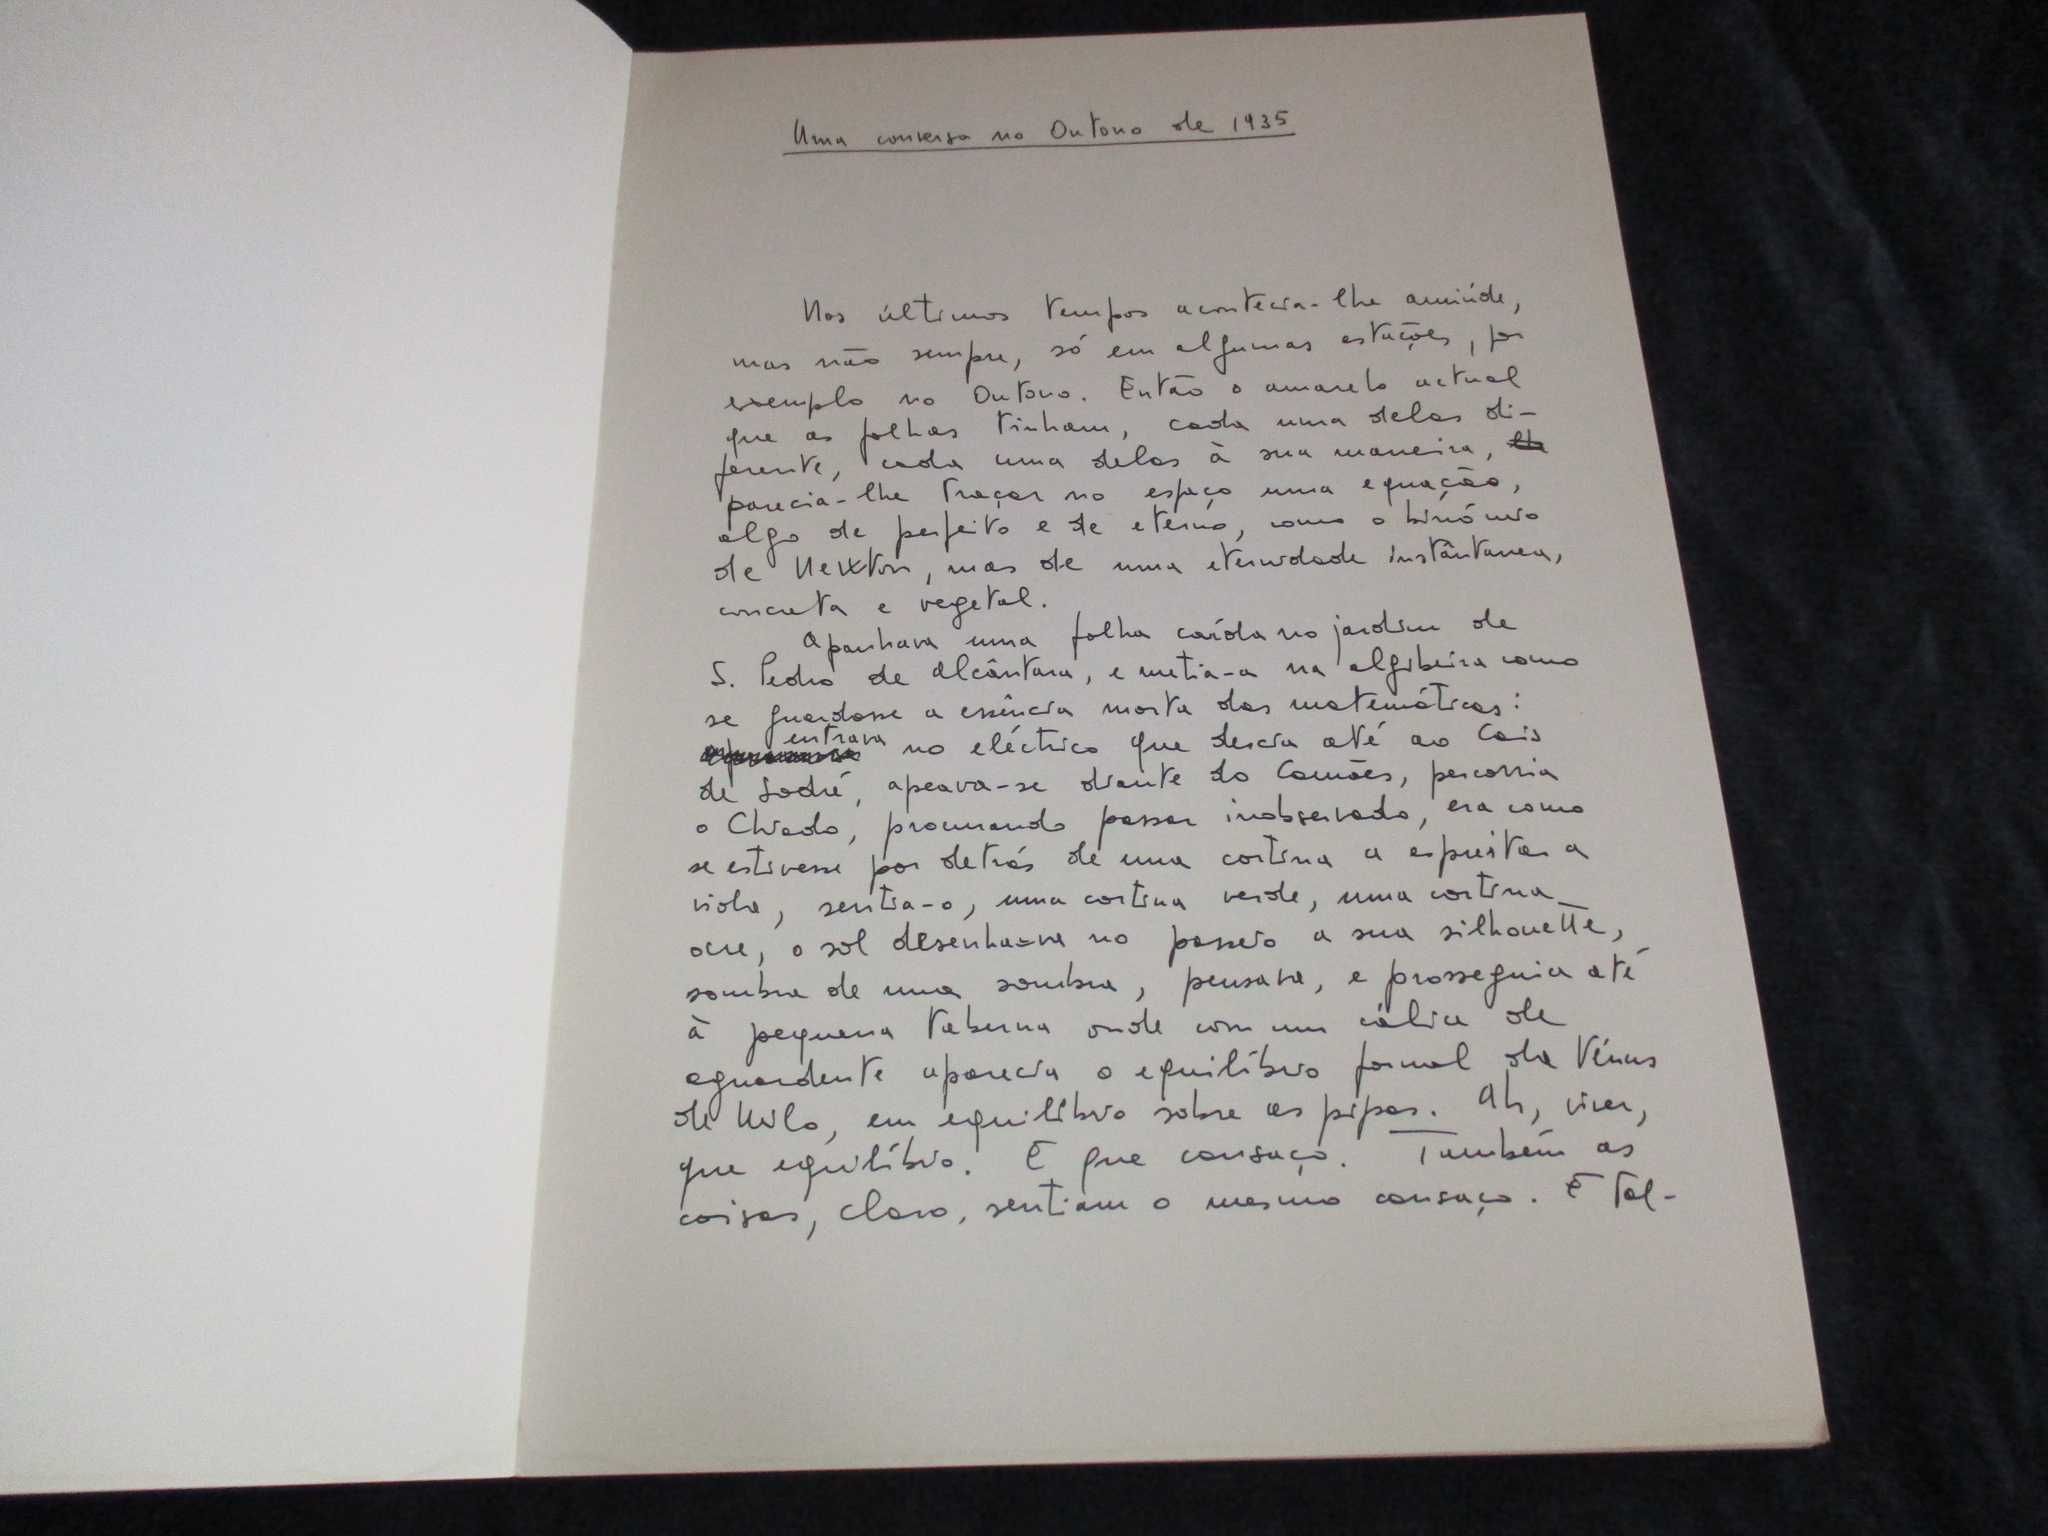 Uma conversa no Outono de 1935
Nos últimos tempos acontecia-lhe amiúde,
mas não sempre, só em algumas estações, por
exemplo no Outono. Então o amarelo actual
que as folhas tinham, cada uma delas di-
ferente, cada uma delas à sua maneira,
parecia-lhe traçar no espaço uma equação,
algo de perfeito e de eterno, como o binómio
de Newton, mas de uma eternidade instântanea,
concreta e vegetal.
Apanhava uma folha caída no jardim de
S. Pedro de Alcântara, e metia-a na algibeira como
se guardasse a essência morta das matemáticas:
entrava no eléctrico que descia até ao Cais
de Sodré, apeava-se diante do Camões, percorria
o Chiado, procurando passar inobservado, era como
se estivesse por detrás de uma cortina a espreitar a
vida, sentia-o, uma cortina verde, uma cortina
ocre, o sol desenhava no passeio a sua silhouette,
sombra de uma sombra, pensava, e prosseguia até
à pequena taberna onde com um cálice de
aguardente aparecia o equilíbrio formal da Vénus
de Milo, em equilíbrio sobre as pipas. Ah, viver,
que equilíbrio. E que cansaço. Também as
coisas, claro, sentiam o mesmo cansaço. E tal-